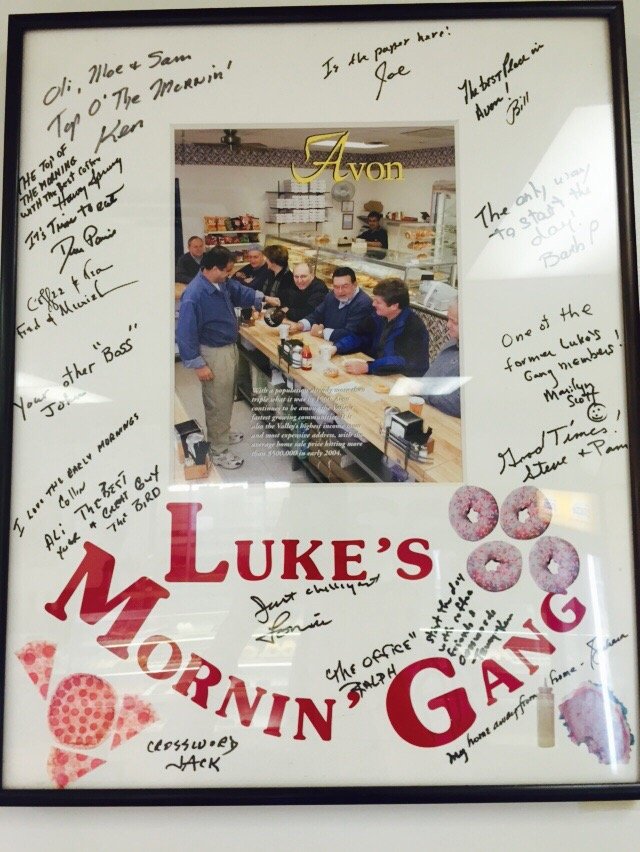 Oli, Moe & Sam
Top O' The Mornin'
Ken
Is the paper here!
Joe
The best Place in
Avon!
Bill
THE TOP OF
THE MORNING
WITH THE BEST
It's Time to eat
Avon
The only way
to start the
day!
Barb P
Coffee &
Fred &
Your other "Boss"
John
One of the
former Luke's
Gang members!
Marilyn
Scott
Good Times!
Steve & Pam
With a population already more than
triple what it was in 1990, Avon
continues to be among the Valley's
fastest growing communities. It's
also the Valley's highest income town
and most expensive address, with the
average home sale price hitting more
than $500,000 in early 2004.
I love the early mornings
Collin
ALI THE BEST
& GREAT GUY
THE BIRD
LUKE'S
MORNIN' GANG
Just chilling
"THE OFFICE"
RALPH
start the day
with
CROSSWORD
JACK
My home away from home -